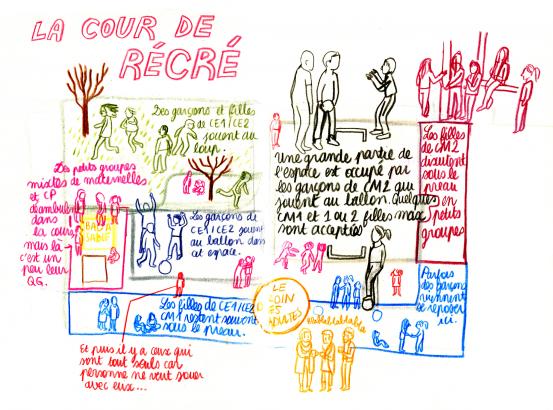 LA COUR DE
RÉCRÉ
Des garçons et filles
de CE1/CE2
jouent au
loup.
Des petits groupes
mixtes de maternelles
et CP
déambulent
dans
la cour,
mais là
c'est un
peu leur
QG.
BAC À
SABLE
Les garçons de
CE1/CE2 jouent
au ballon dans
cet espace.
Une grande partie de
l'espace est occupé par
les garçons de CM2 qui
jouent au ballon. Quelques
CM1 et 1 ou 2 filles max
sont acceptés
Les filles
de CM2
discutent
sous le
preau
en
petits
groupes
Parfois
des garçons
viennent
se reposer
ici.
Les filles de CE1/CE2
CM1 restent souvent
sous le preau.
LE
COIN
DES
ADULTES
Blablablabla
Et puis il y a ceux qui
sont tout seuls car
personne ne veut jouer
avec eux...